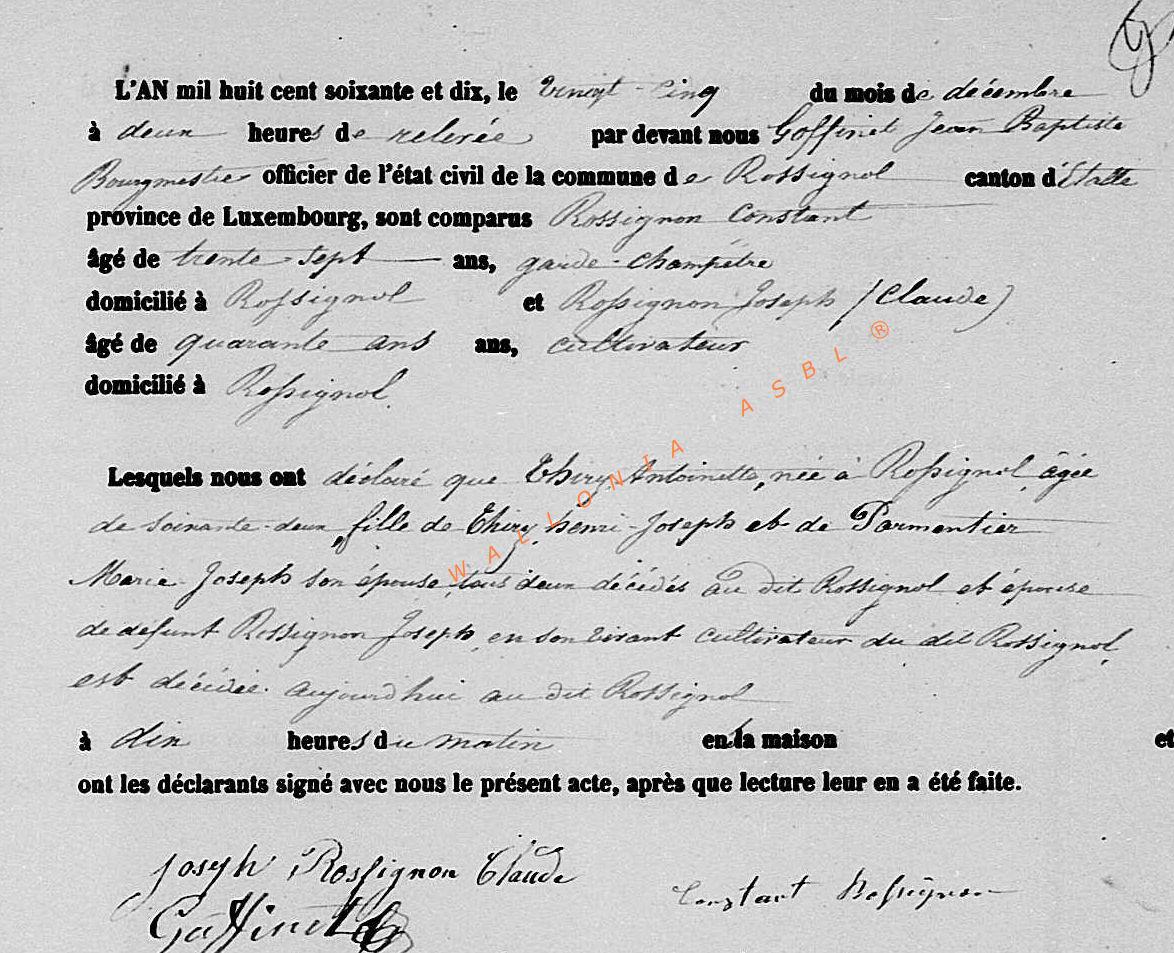 L'AN mil huit cent soixante et dix, le vingt-cinq du mois de décembre
à deux heures de relevée par devant nous Goffinet Jean Baptiste
Bourgmestre officier de l'état civil de la commune de Rossignol canton d'Etalle
province de Luxembourg, sont comparus Rossignon Constant
âgé de trente-sept ans, garde-champêtre
domicilié à Rossignol et Rossignon Joseph (Claude)
âgé de quarante ans ans, cultivateur
domicilié à Rossignol
Lesquels nous ont déclaré que Thiry Antoinette, née à Rossignol âgée
de soixante-deux, fille de Thiry henri-Joseph et de Parmentier
Marie-Joseph son épouse, tous deux décédés au dit Rossignol et épouse
de defunt Rossignon Joseph, en son vivant cultivateur du dit Rossignol,
est décédée aujourd'hui au dit Rossignol
à dix heures du matin en la maison et
ont les déclarants signé avec nous le présent acte, après que lecture leur en a été faite.
Joseph Rossignon Claude
Constant Rossignon
Goffinet
WALLONIA ASBL ®